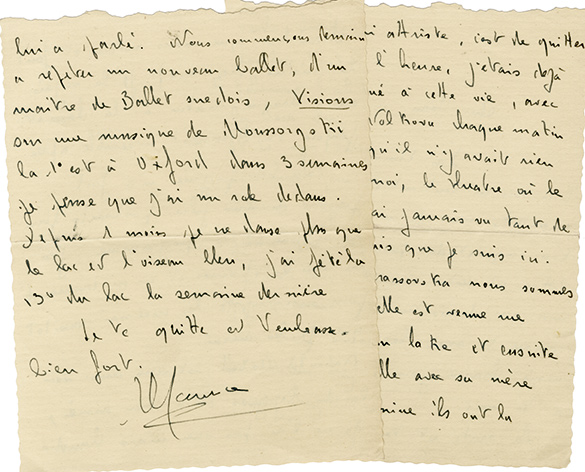 lui a parlé. Nous commençons demain
a répéter un nouveau ballet, d'un
maitre de Ballet suedois, Visions
sur une musique de Moussorgskii
la 1° est à Oxford dans 3 semaines
je pense que j'ai un role dedans.
Depuis 1 mois je ne danse plus que
le lac et l'oiseau bleu, j'ai fêté la
du lac la semaine dernière
Je te quitte et t'embrasse
bien fort.
Maurice
attriste, c'est de quitter
l'heure, j'étais déjà
é à cette vie, avec
Volkova chaque matin
qu'il n'y avait rien
moi, le theatre où le
ai jamais vu tant de
is que je suis ici.
rassovska nous sommes
elle est venue me
lac et ensuite
lle avec sa mère
mine ils ont la